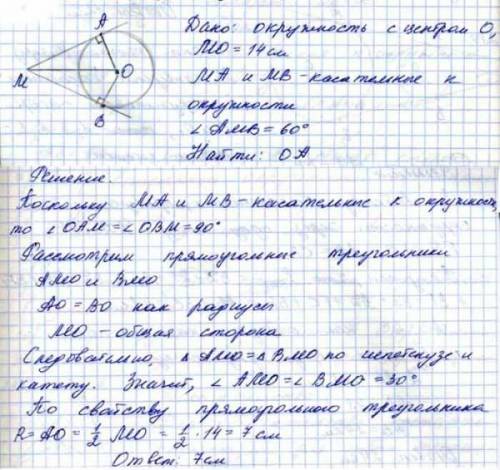 А
М
О
В
Дано: окружность с центром О,
МО = 14 см
МА и МВ - касательные к
окружности
∠АМВ = 60°
Найти: ОА
Решение.
Поскольку МА и МВ - касательные к окружности,
то ∠ОАМ = ∠ОВМ = 90°
Рассмотрим прямоугольные треугольники
АМО и ВМО
АО = ВО как радиусы
МО - общая сторона
Следовательно, △АМО = △ВМО по гипотенузе и
катету. Значит, ∠АМО = ∠ВМО = 30°
По свойству прямоугольного треугольника
R = АО = 1/2 МО = 1/2 · 14 = 7 см
Ответ: 7 см